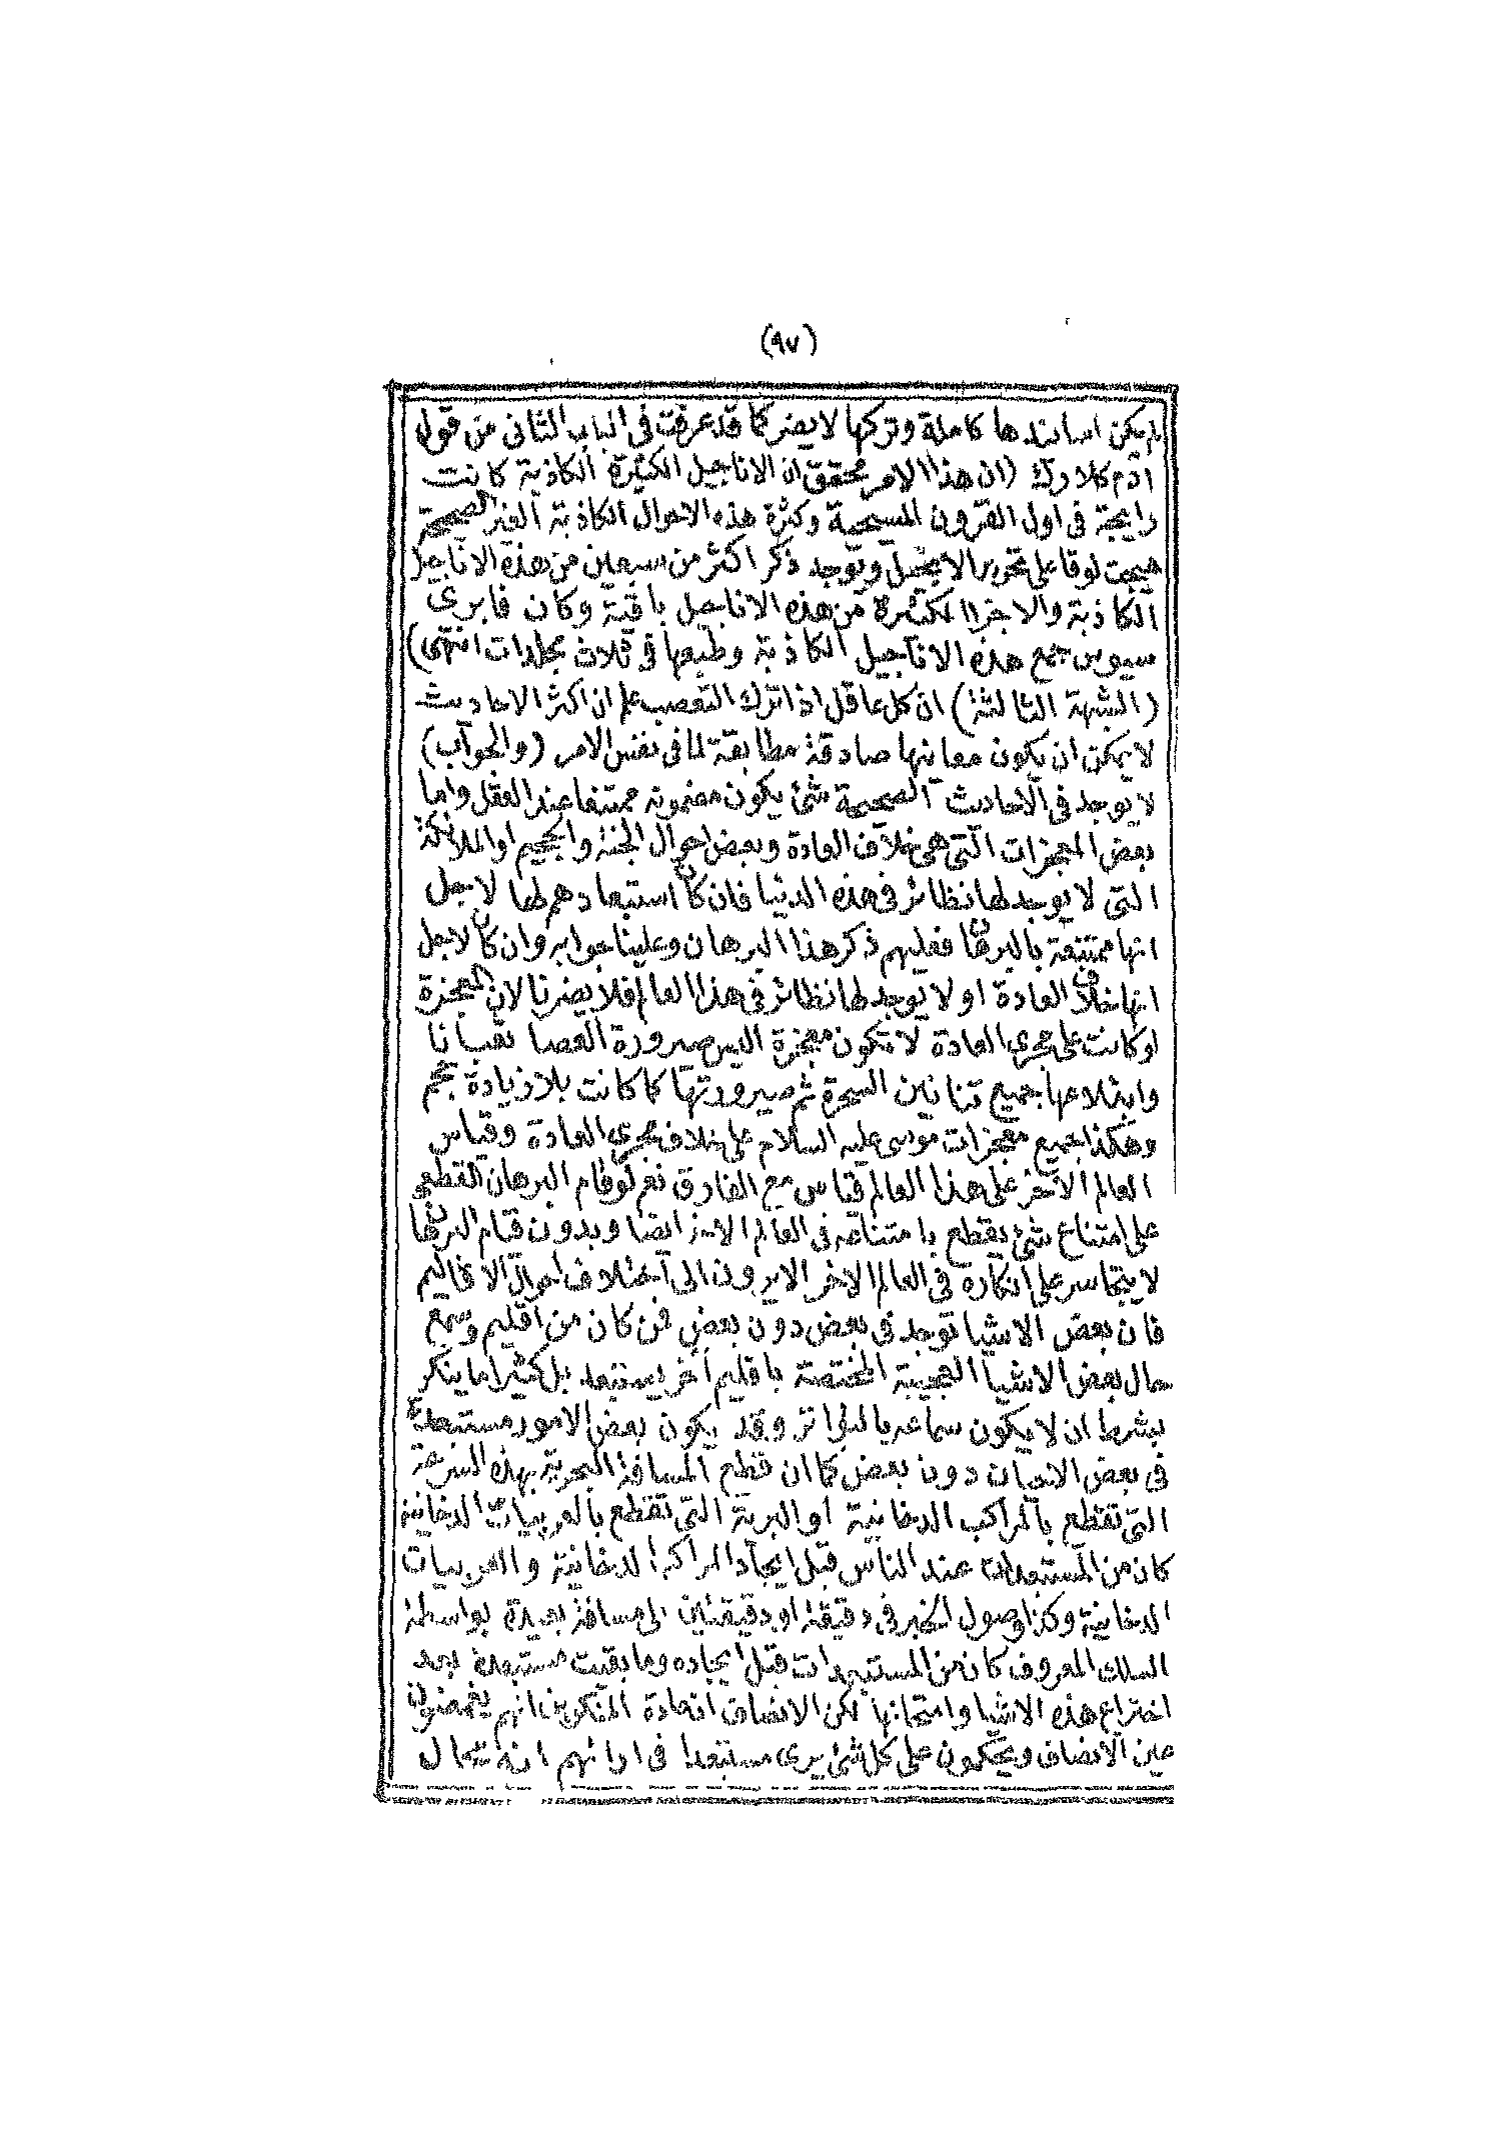 (٩٧)
لم يكن اسانيدها كاملة وتركها لا يضر كما قد عرفت فى الباب الثانى من قول
ادم كلارك (ان هذا الامر محقق ان الاناجيل الكثيرة الكاذبة كانت
رايجة فى اول القرون المسيحية وكثرة هذه الاحوال الكاذبة الغير الصحيحة
هيجت لوقا على تحرير الانجيل وتوجد ذكر اكثر من سبعين من هذه الاناجيل
الكاذبة والاجزا الكثيرة من هذه الاناجيل باقية وكان فابرى
سيوس جمع هذه الاناجيل الكاذبة وطبعها فى ثلاث مجلدات انتهى)
(الشبهة الثالثة) ان كل عاقل اذا ترك التعصب علم ان اكثر الاحاديث
لا يمكن ان يكون معانيها صادقة مطابقة لما فى نفس الامر (والجواب)
لا يوجد فى الاحاديث الصحيحة شئ يكون مضمونه ممتنعا عند العقل واما
بعض المعجزات التى هى خلاف العادة وبعض احوال الجنة والجحيم او الملائكة
التى لا يوجد لها نظائر فى هذه الدنيا فان كان استبعادهم لها لاجل
انها ممتنعة بالبرهان فعليهم ذكر هذا البرهان وعلينا جوابه وان كان لاجل
انها خلاف العادة او لا يوجد لها نظائر فى هذا العالم فلا يضرنا لان المعجزة
لو كانت على مجرى العادة لا تكون معجزة اليس صيرورة العصا ثعبانا
وابتلاعها جميع تنانين السحرة ثم صيرورتها كما كانت بلا زيادة حجم
وهكذا جميع معجزات موسى عليه السلام على خلاف مجرى العادة وقياس
العالم الاخر على هذا العالم قياس مع الفارق نعم لو قام البرهان القطعى
على امتناع شئ يقطع بامتناعه فى العالم الاخر ايضا وبدون قيام البرهان
لا يتجاسر على انكاره فى العالم الاخر الا يرون الى اختلاف احوال الاقاليم
فان بعض الاشيا توجد فى بعض دون بعض فمن كان من اقليم وسمع
حال بعض الاشيا العجيبة المختصة باقليم آخر يستبعد بل كثيرا ما ينكر
بشرط ان لا يكون سماعه بالتواتر وقد يكون بعض الامور مستبعدة
فى بعض الاحيان دون بعض كما ان قطع المسافة البحرية بهذه السرعة
التى تقطع بالمراكب الدخانية او البرية التى تقطع بالعربيات الدخانية
كان من المستبعدات عند الناس قبل ايجاد المراكب الدخانية والعربيات
الدخانية وكذا وصول الخبر فى دقيقة او دقيقتين الى مسافة بعيدة بواسطة
السلك المعروف كان من المستبعدات قبل ايجاده وما بقيت مستبعدة بعد
اختراع هذه الاشيا وامتحانها لكن الانصاف ان عادة المنكرين انهم يغمضون
عين الانصاف ويحكمون على كل شئ يرى مستبعدا فى ارائهم انه محال